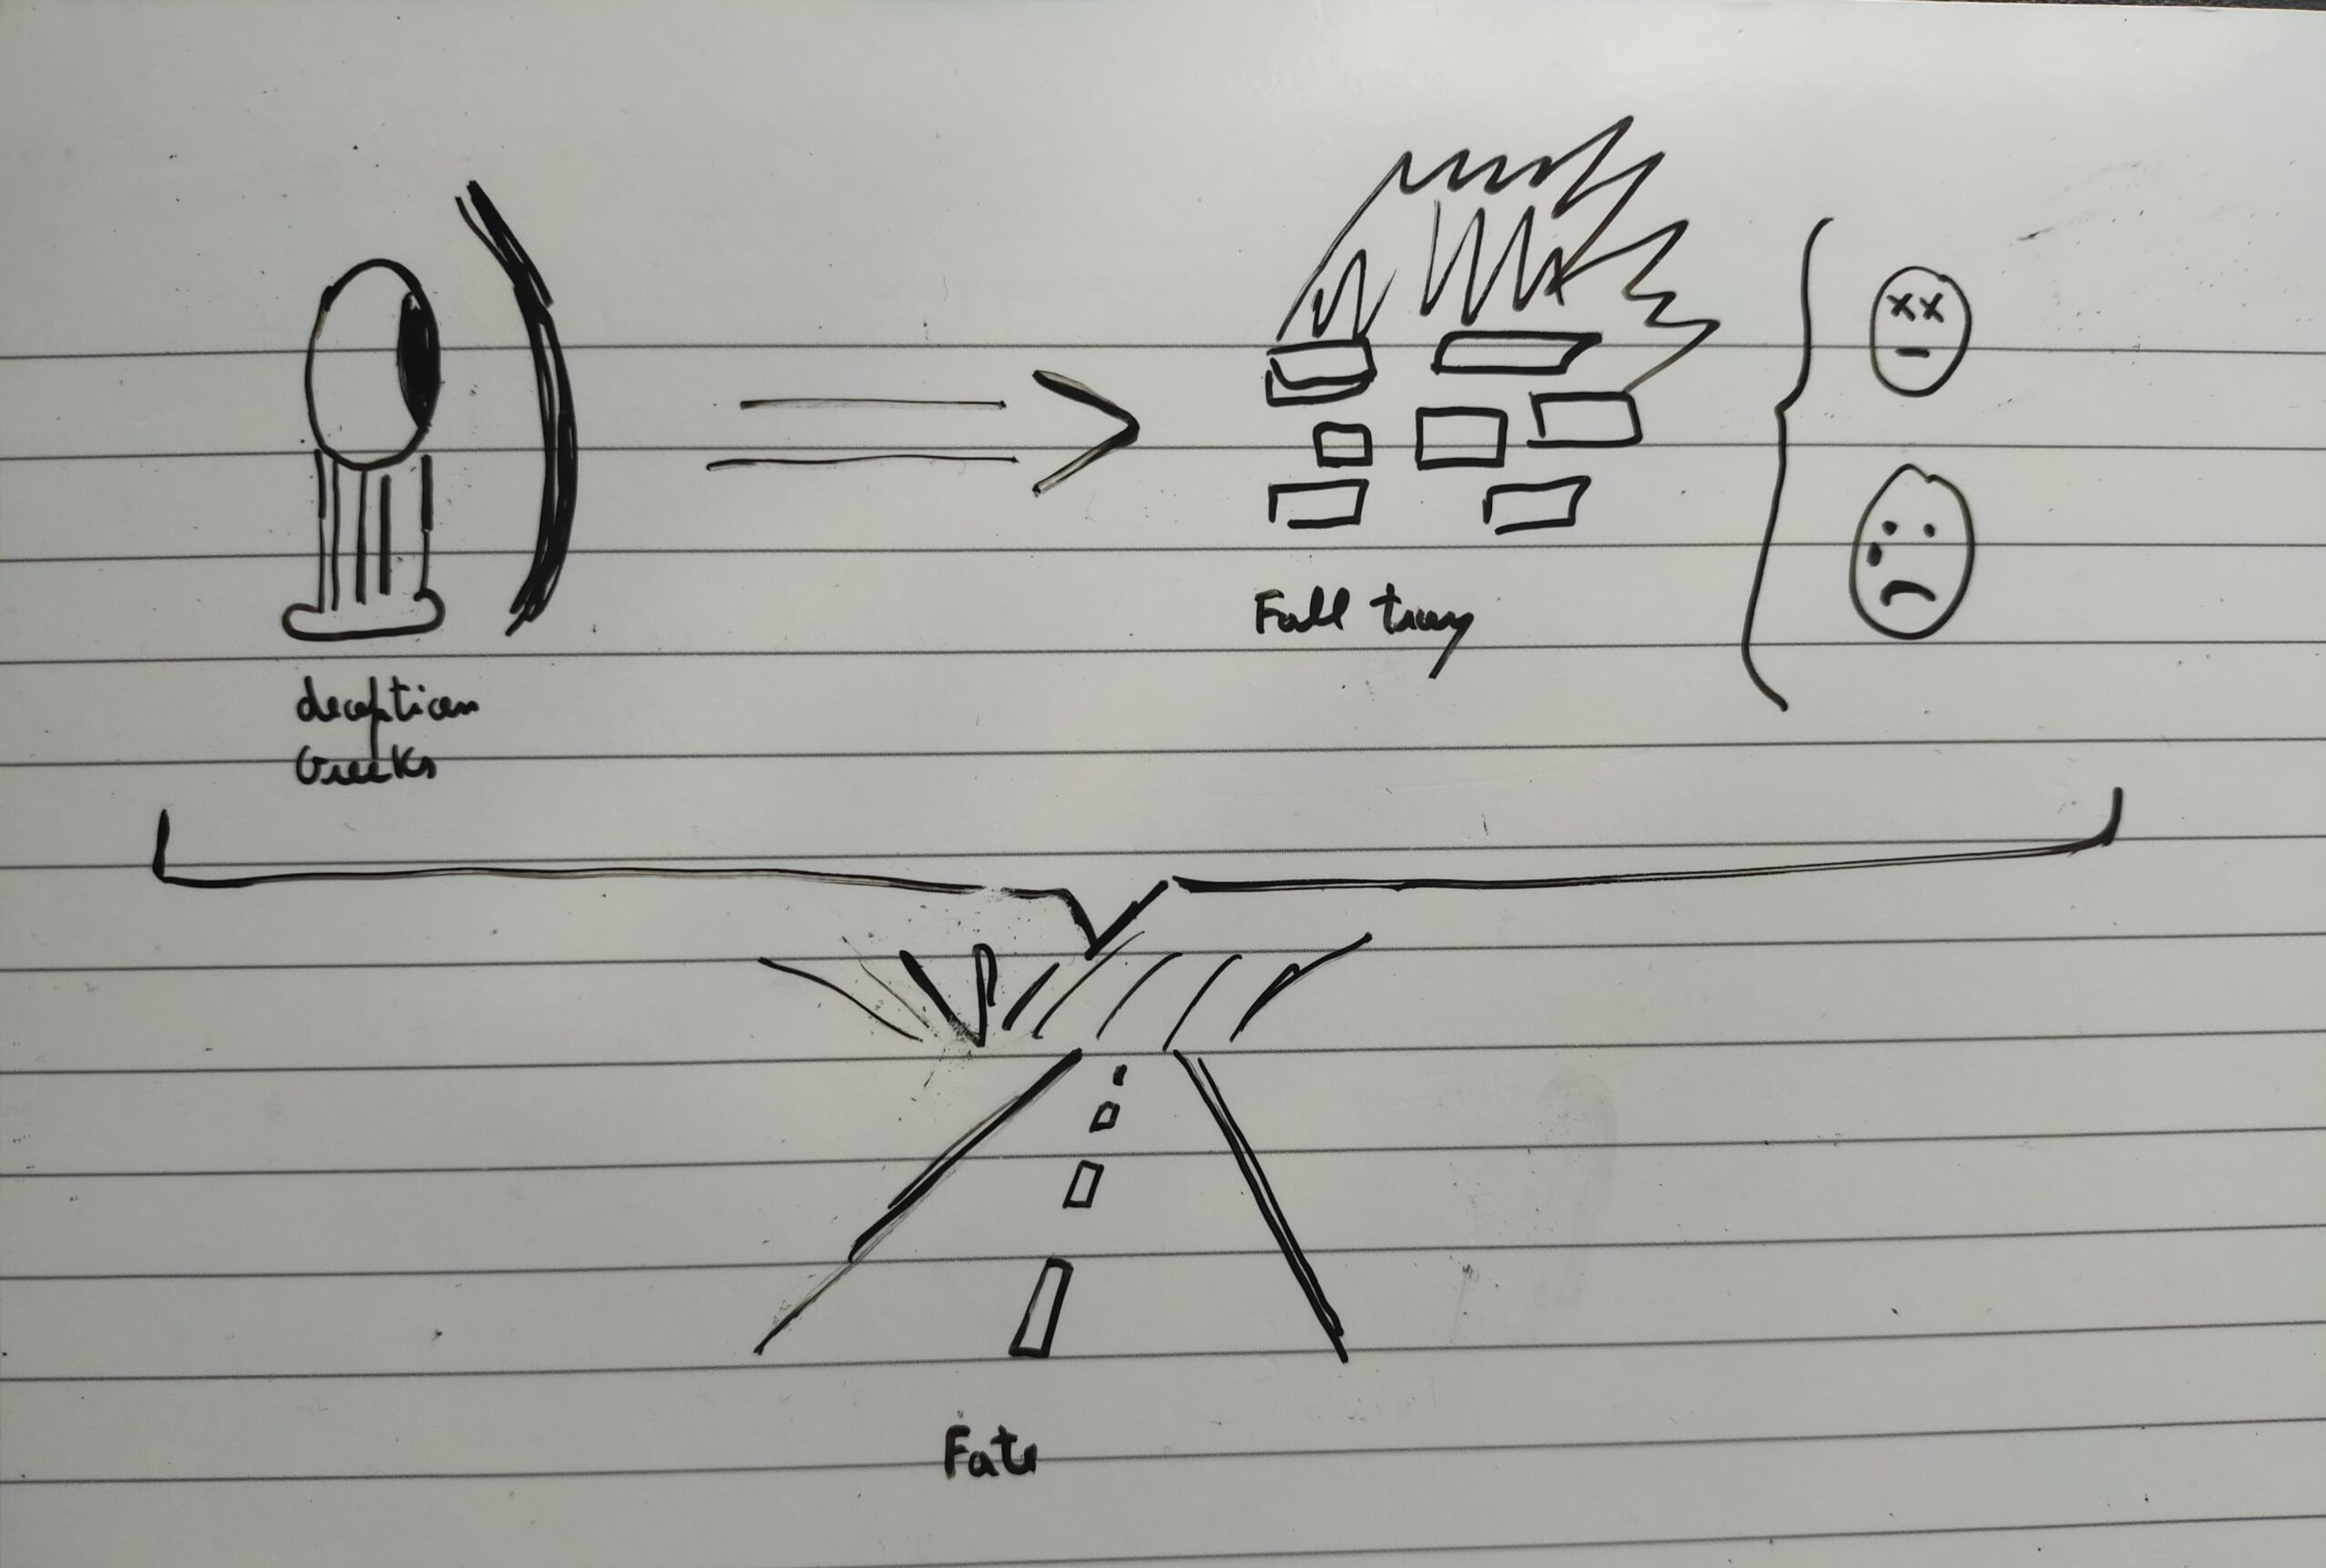 deception
Greeks
Fall troy
Fate